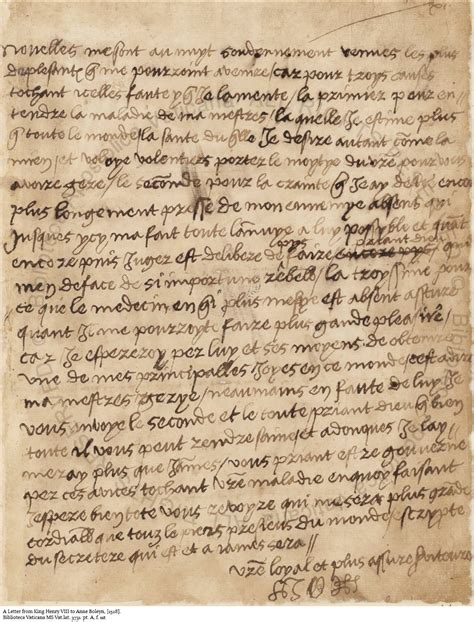 Nouvelles me sont au nuyt soudennement venues les plus
deplesant q me pourroint avenire / car pour troys causes
tochant icelles faute y q Je lamente / la primier pour en-
tendre la maladie de ma mestres / la quelle Je estime plus
q toute le monde / la sante du q̄lle Je desire autant cōme la
mien / et voloye volentiers porter le moytye du vr̄e pour vous
avoire gere / le secōnde pour la crainte q̄ Je ay de estre encore
plus longement presse de mon ennemye absens qui
Jusques ycy ma fait toute lannuye a luy possyble et quant
encore puis Juger est delibere de faire pys priant dieu
q men deface de si importune rebell / la troysime pour
ce que le medecin en qi plus me fye est absent asture
quant Il me pourroyte faire plus grande pleasure /
car Je espereroy per luy et ses moyens de obtenire
une de mes principalles Joyes en ce monde / cest a dire
ma mestres gerye / neaumains en faute de luy Je
vous envoye le seconde et le toute priant dieu q̄ bien
toute il vous peut rendre saine / et adonques Je lay-
meray plus que Jamès / vous priant estre gouverne
per ces avices tochant vr̄e maladie en quoy faisant
Jespere bien tote vous revoyre qui me sera plus grade
cordiall que touz le piers precieus du monde / escripte
du secretere qui est et a James sera //
vr̄e loyal et plus assure serviteure
H R
A Letter from King Henry VIII to Anne Boleyn, [1528].
Biblioteca Vaticana MS Vat.lat. 3731 pt. A, f.